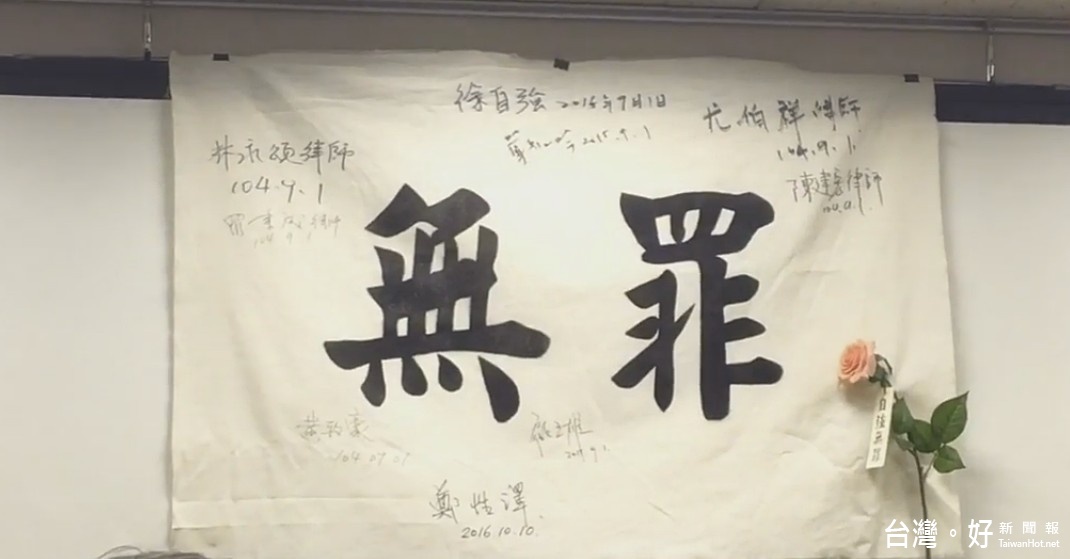 徐自強 2015年9月1日
2015.9.1
尤伯祥律師
104.9.1.
林永頌律師
104.9.1
陳建宏律師
104.9.1.
羅秉成律師
104.9.1
無罪
自強無罪
黃致豪
104.09.01
鄭性澤
2016.10.10.
台灣。好 新聞報
TaiwanHot.net